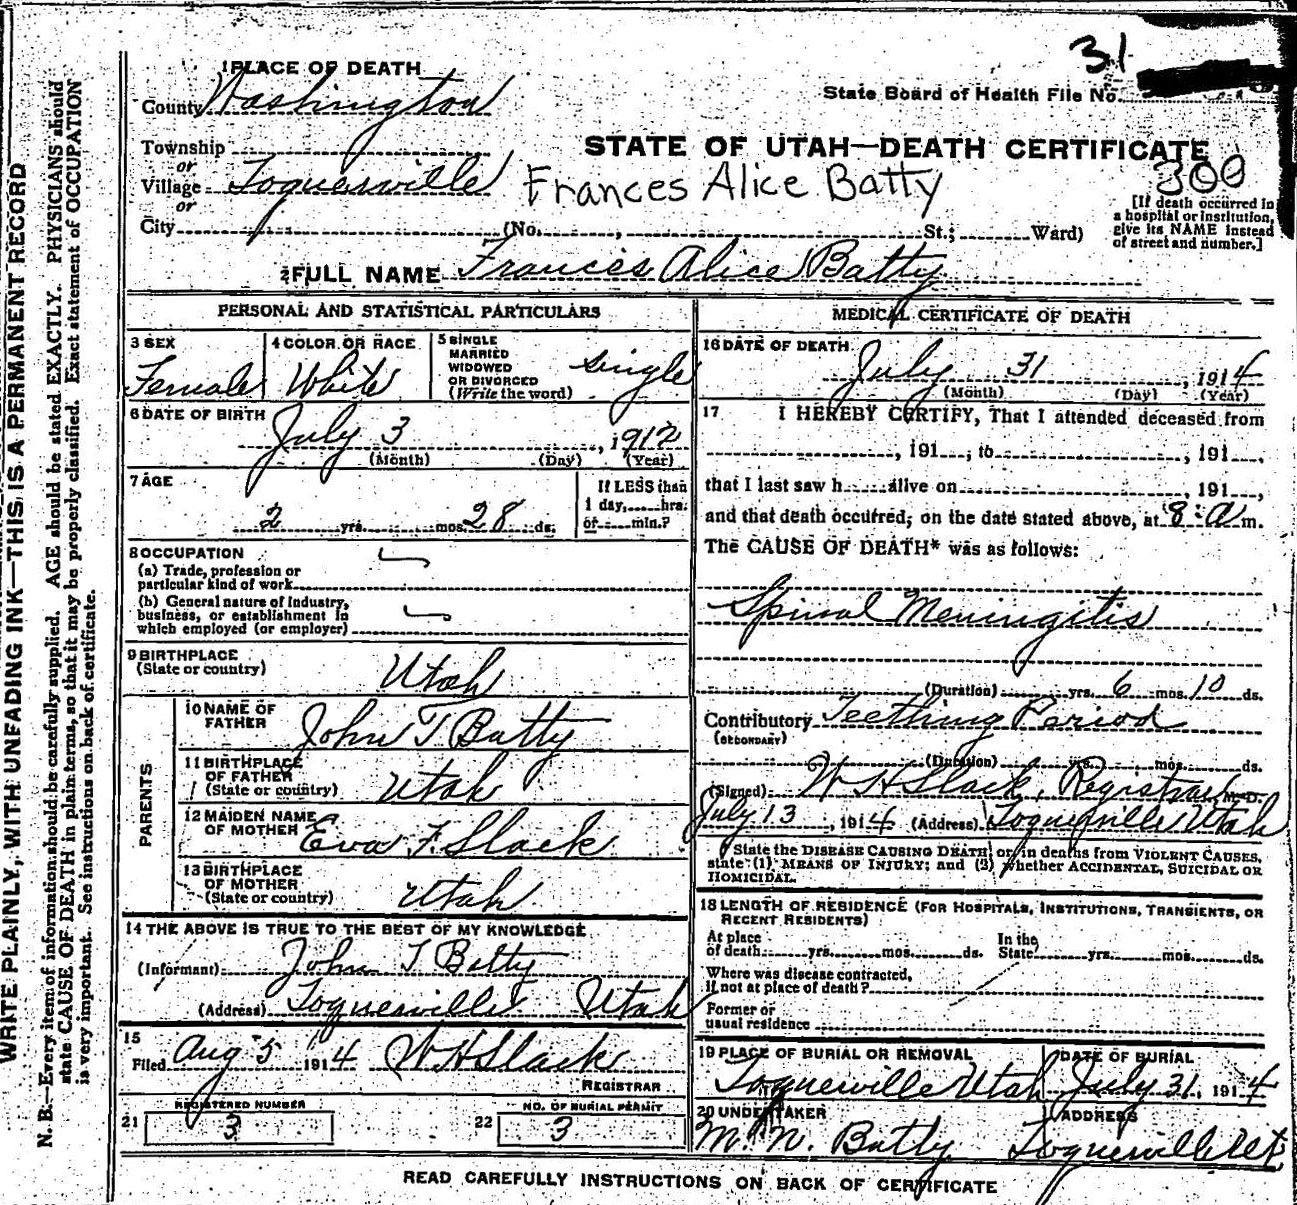 31
State Board of Health File No.
1 PLACE OF DEATH
County Washington
STATE OF UTAH—DEATH CERTIFICATE
Township
or
Village Toquerville
Frances Alice Batty
300
or
City (No. , St.; Ward)
[If death occurred in
a hospital or institution,
give its NAME instead
of street and number.]
2 FULL NAME Frances Alice Batty
PERSONAL AND STATISTICAL PARTICULARS
3 SEX
Female
4 COLOR OR RACE
White
5 SINGLE
MARRIED
WIDOWED
OR DIVORCED
(Write the word)
Single
6 DATE OF BIRTH
July 3, 1912
(Month) (Day) (Year)
7 AGE
2 yrs. mos. 28 ds.
If LESS than
1 day, hrs.
or min.?
8 OCCUPATION
(a) Trade, profession or
particular kind of work
(b) General nature of industry,
business, or establishment in
which employed (or employer)
9 BIRTHPLACE
(State or country)
Utah
PARENTS
10 NAME OF
FATHER
John T Batty
11 BIRTHPLACE
OF FATHER
(State or country)
Utah
12 MAIDEN NAME
OF MOTHER
Eva F. Slack
13 BIRTHPLACE
OF MOTHER
(State or country)
Utah
14 THE ABOVE IS TRUE TO THE BEST OF MY KNOWLEDGE
(Informant) John T Batty
(Address) Toquerville Utah
15
Filed Aug 5 1914 W H Slack
REGISTRAR
21 REGISTERED NUMBER
3
22 NO. OF BURIAL PERMIT
3
MEDICAL CERTIFICATE OF DEATH
16 DATE OF DEATH
July 31, 1914
(Month) (Day) (Year)
17 I HEREBY CERTIFY, That I attended deceased from
, 191 , to , 191 ,
that I last saw h alive on , 191 ,
and that death occurred, on the date stated above, at 8:a m.
The CAUSE OF DEATH* was as follows:
Spinal Meningitis
(Duration) yrs. 6 mos. 10 ds.
Contributory Teething Period
(SECONDARY)
(Duration) yrs. mos. ds.
(Signed) W H Slack, Registrar M. D.
July 13, 1914 (Address) Toquerville Utah
State the DISEASE CAUSING DEATH, or, in deaths from VIOLENT CAUSES,
state (1) MEANS OF INJURY; and (2) whether ACCIDENTAL, SUICIDAL OR
HOMICIDAL.
18 LENGTH OF RESIDENCE (FOR HOSPITALS, INSTITUTIONS, TRANSIENTS, OR
RECENT RESIDENTS)
At place
of death yrs. mos. ds.
In the
State yrs. mos. ds.
Where was disease contracted,
If not at place of death?
Former or
usual residence
19 PLACE OF BURIAL OR REMOVAL
Toquerville Utah
DATE OF BURIAL
July 31, 1914
20 UNDERTAKER
M. N. Batty
ADDRESS
Toquerville Ut
READ CAREFULLY INSTRUCTIONS ON BACK OF CERTIFICATE
WRITE PLAINLY, WITH UNFADING INK—THIS IS A PERMANENT RECORD
N. B.—Every item of information should be carefully supplied. AGE should be stated EXACTLY. PHYSICIANS should
state CAUSE OF DEATH in plain terms, so that it may be properly classified. Exact statement of OCCUPATION
is very important. See instructions on back of certificate.